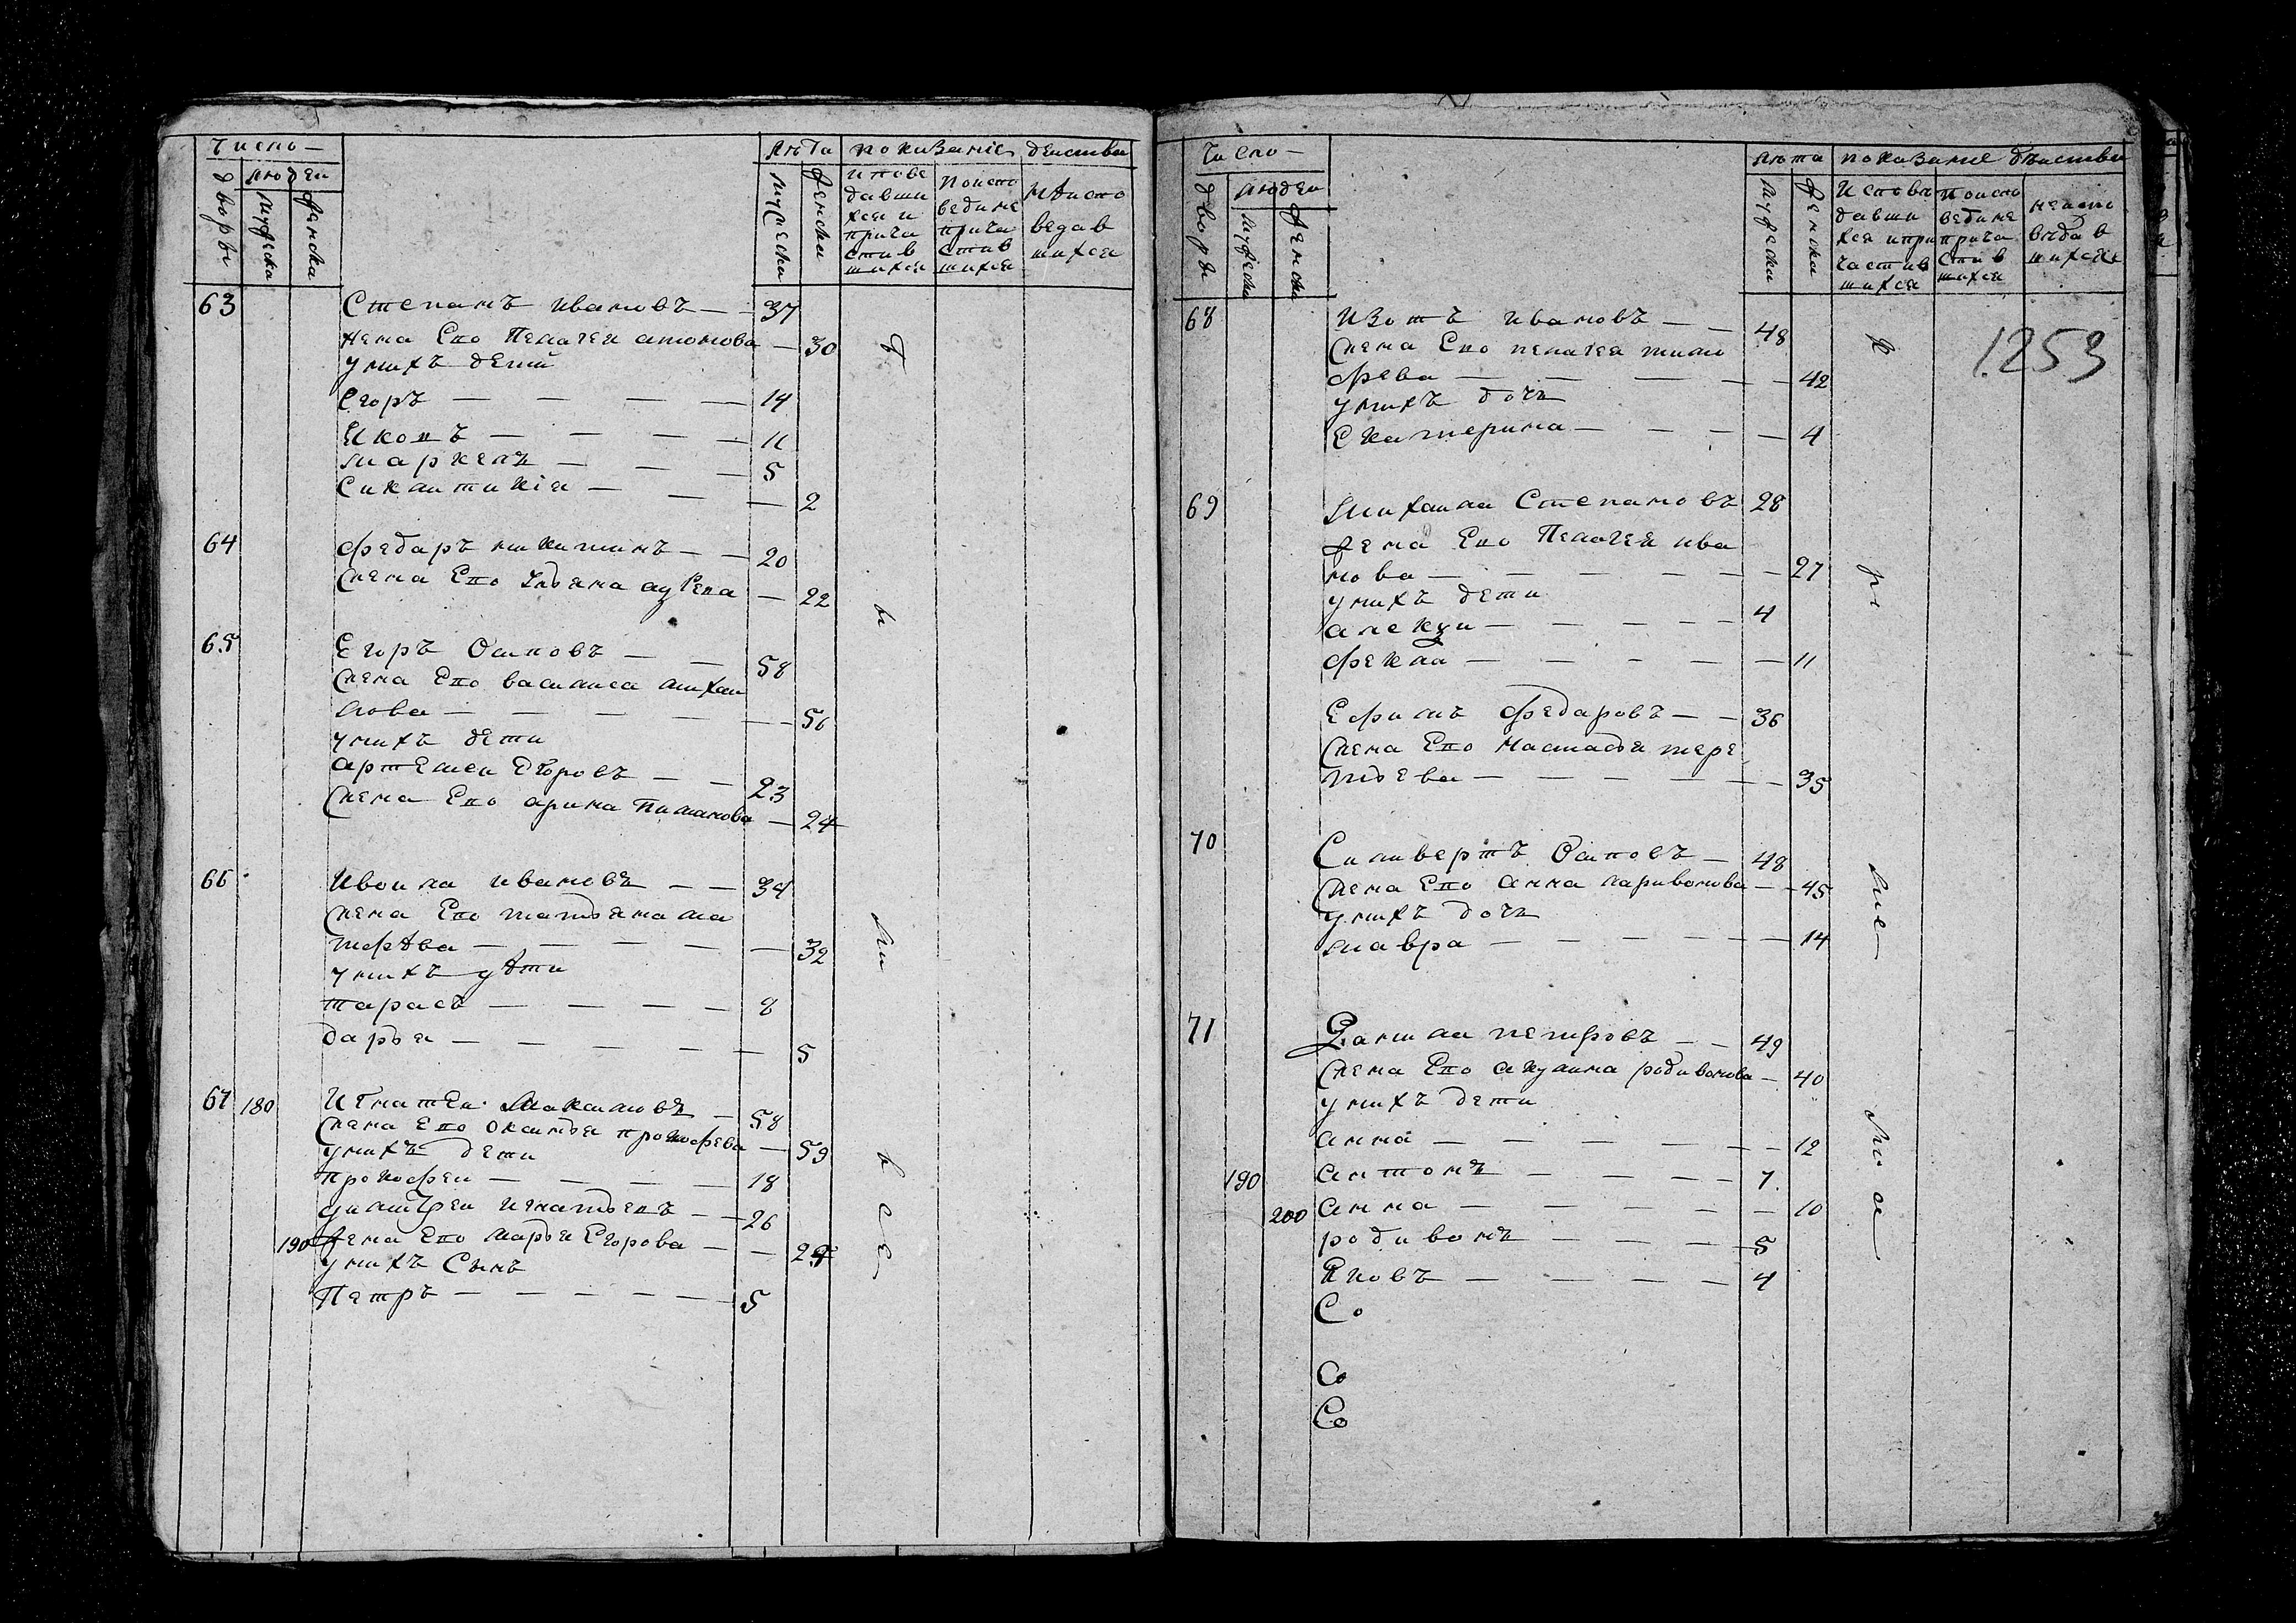 Число
Лѣта показаніе действа
дворы
людеи
мужеска
женска
мужеска
женски
испове
давши
хся и
прича
стив
шихся
поиспо
ведине
прича
стив
шихся
нѣиспо
ведав
шихся
63 Степанъ ивановъ 37
жена Его Пелагея 30
унихъ дети
Егоръ 14
Якопъ 11
маркелъ 5
2
64 Федаръ никитинъ 20
жена Его Ульяна 22
65 Егоръ Осиповъ 58
жена Его василиса михаи
лова 56
унихъ дети
артемеи Егоровъ 23
жена Его арина 24
66 Ивоила ивановъ 34
жена Его татьяна ма
тфѣва 32
унихъ дѣти
тарасъ 8
дарья 5
67 180 Игнатеи Максимовъ 58
жена Его оксинья прокофева 59
унихъ дети
прокофеи 18
дмитреи игнатьевъ 26
190 жена Его марья Егорова 24
унихъ Сынъ
Петръ 5
б
ы
ли
все
Число
лѣта показание дѣиства
дворы
людеи
мужески
женски
мужески
женски
Испове
давши
хся ипри
частив
шихся
поиспо
ведине
прича
стив
шихся
неиспо
ведав
шихся
1253
68 Изотъ ивановъ 48
жена Его пелагея тимо
фева 42
унихъ дочь
Екатерина 4
69 михаила Степановъ 28
жена Его Пелагея ива
нова 27
унихъ дети
алекѣи 4
фекла 11
Ефимъ федаровъ 36
жена Его настасья тере
нтьева 35
70 Силивертъ Осиповъ 48
жена Его анна ларивонова 45
унихъ дочь
мавра 14
71 Данила петровъ 49
жена Его акулина родивонова 40
унихъ дети
анна 12
190 антонъ 7
200 анна 10
родивонъ 5
Яковъ 4
Со
Со
Со